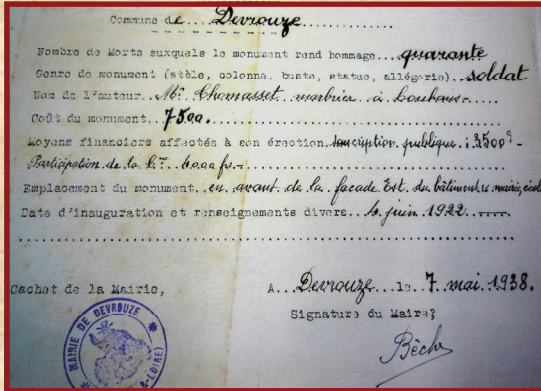 Commune de Devrouze
Nombre de Morts auxquels le monument rend hommage... quarante
Genre de monument (stèle, colonne, buste, statue, allégorie) soldat
Nom de l'auteur. Mr Chamasset marbrier à Louhans
Coût du monument. 7500.
Moyens financiers affectés à son érection. souscription publique : 3500 f
Participation de la Cne 4000 fs
Emplacement du monument en avant de la façade Est du bâtiment mairie, école
Date d'inauguration et renseignements divers. 4 juin 1922
Cachet de la Mairie,
A... Devrouze... le. 7 mai 1938.
Signature du Maire,
MAIRIE DE DEVROUZE
-LOIRE)